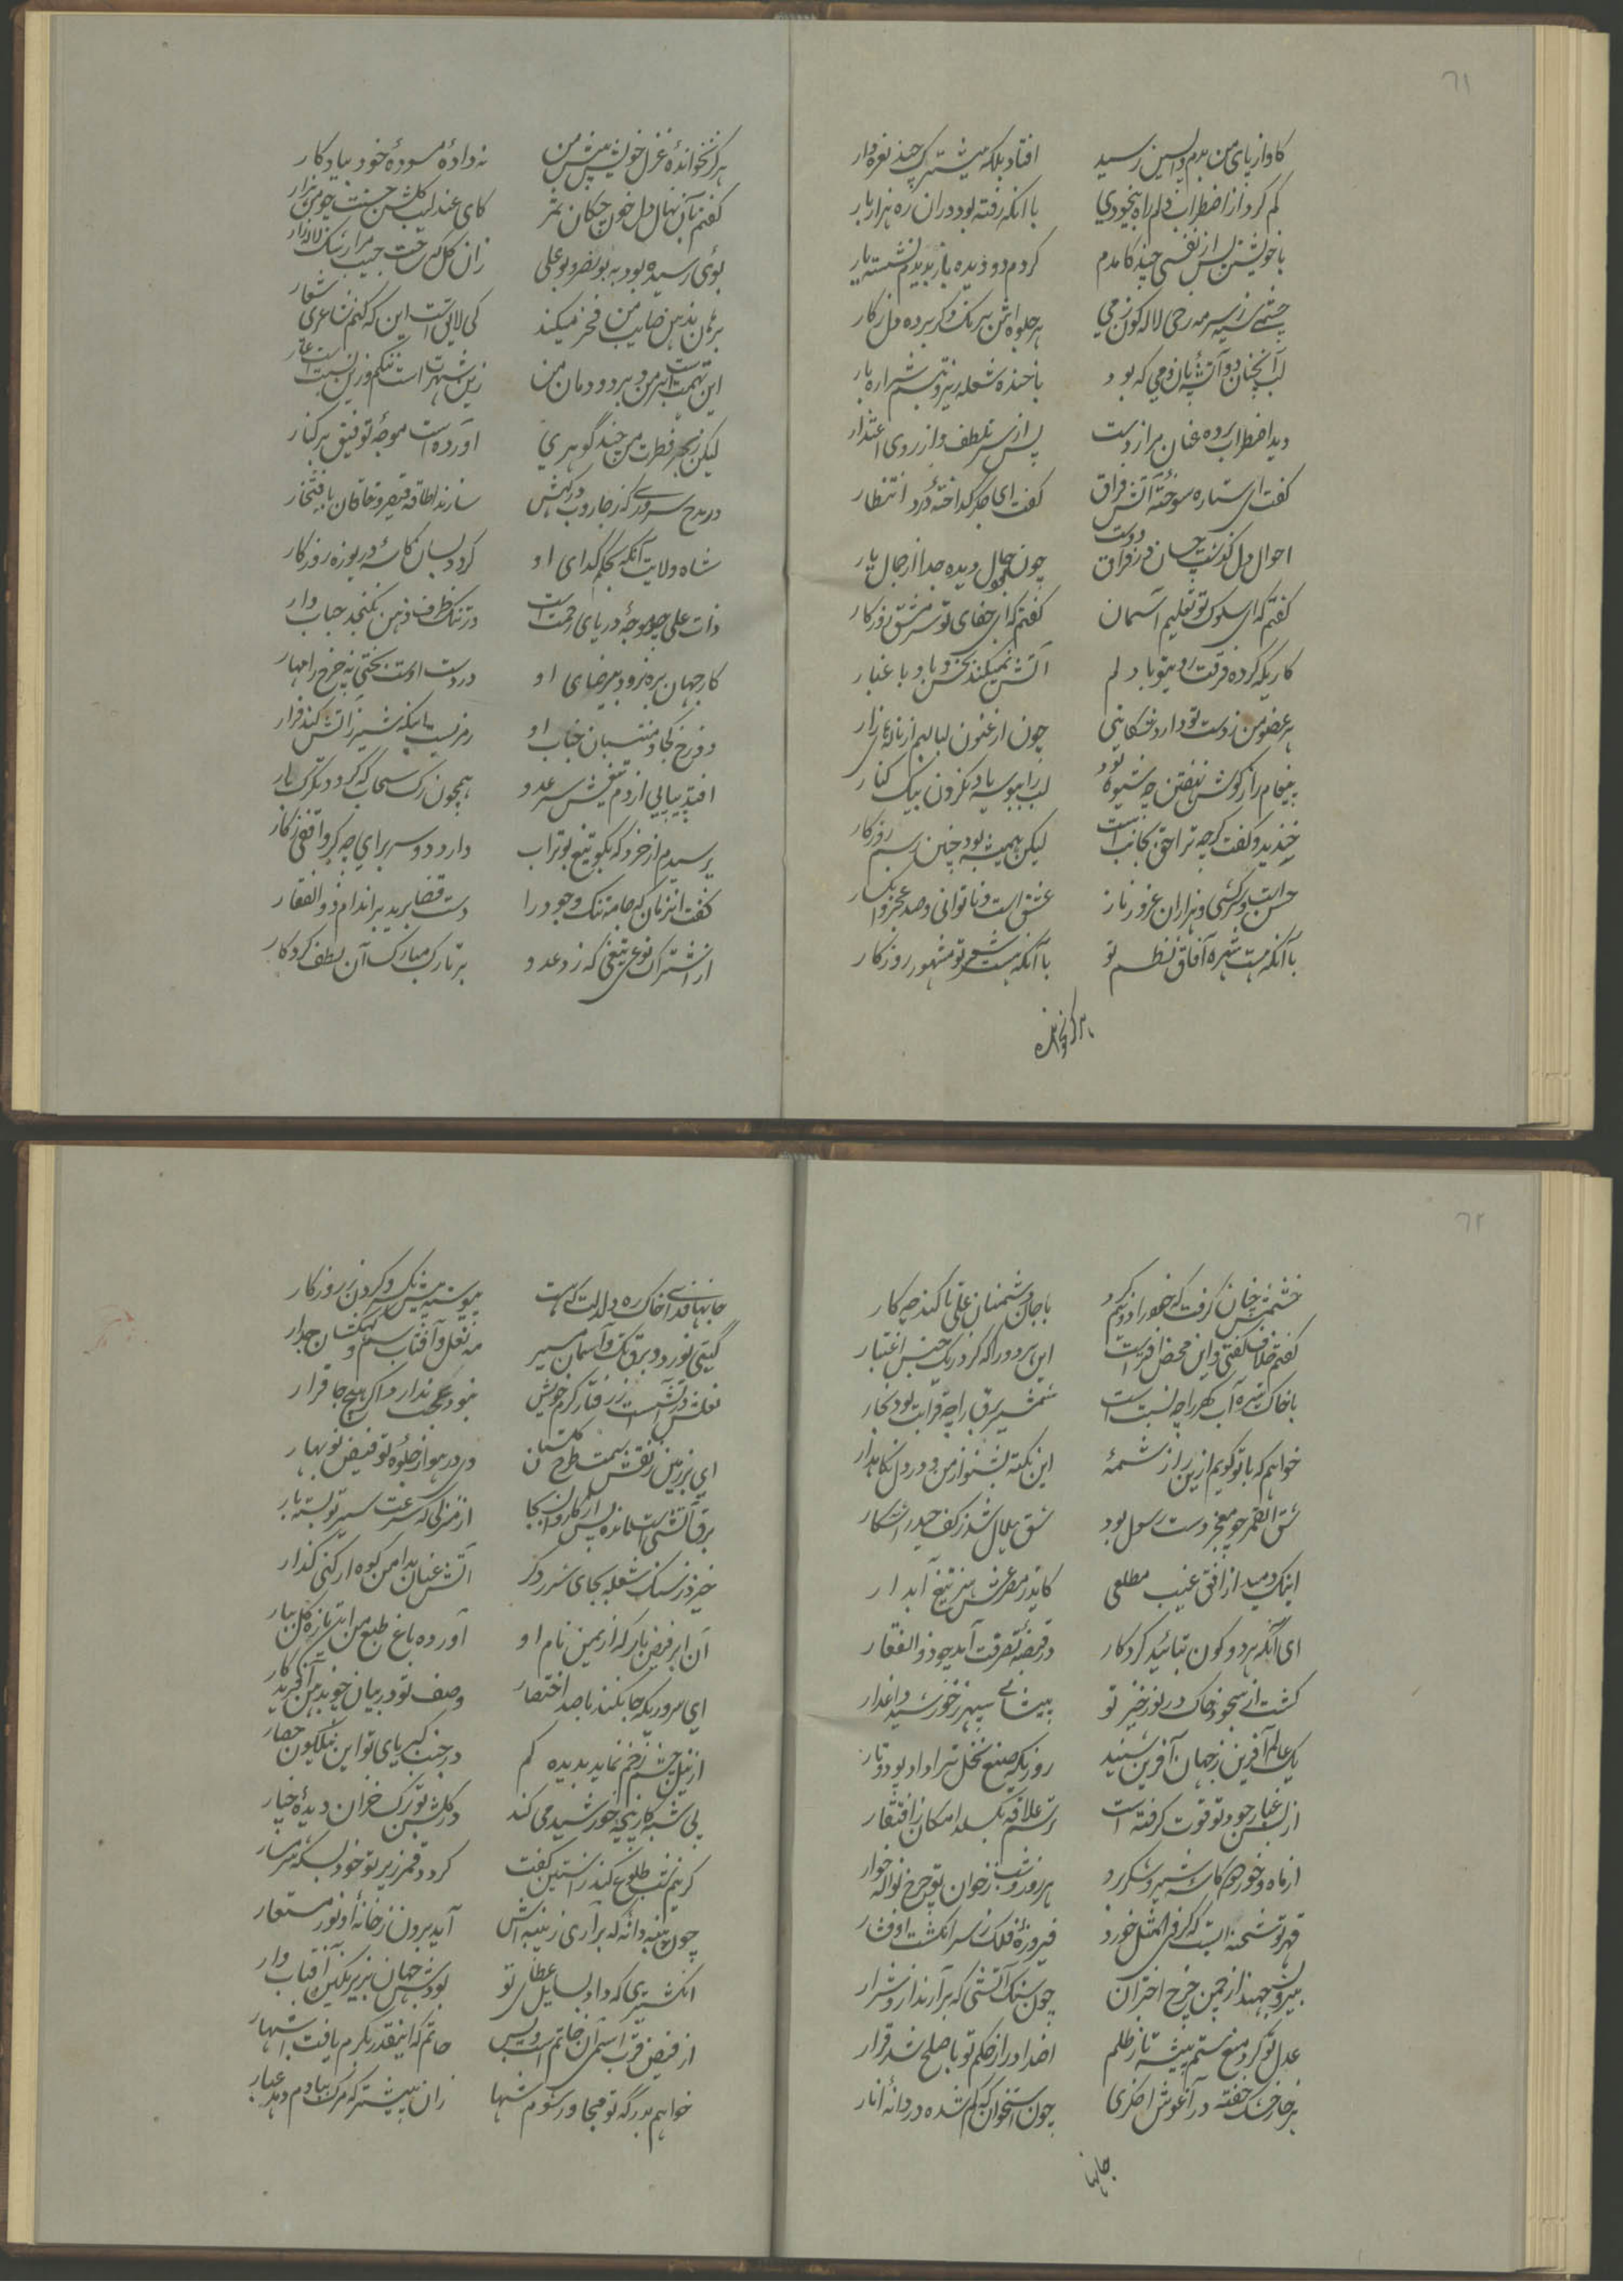 ٦١
کاواز پای من بدم واپسین رسید افتاد بلکه پیشترک چند نعره وار
کم کرد از اضطراب دلم راه بیخودی با آنکه رفته بود در آن ره هزار بار
با خویشتن پس از نفسی چند کامدم کردم دو دیده باز بدیدم نشسته یار
چشمی سیه ز سرمه رخی لاله گون ز می هر جلوه اش نیرنگ دگر برده دل ز کار
لب آنچنان دو آتشه زان می که بود با خنده شعله ریز و تبسم شراره بار
دید اضطراب برده عنان مرا ز دست پس از سر تلطف و از روی اعتذار
گفت ای ستاره سوختهٔ آتش فراق گفت ای جگر گداختهٔ درد انتظار
احوال دل گذشت چسان در فراق دوست چون بود حال دیده جدا از جمال یار
گفتم که ای سلوک تو تعلیم آسمان گفتم که ای جفای تو سرمشق روزگار
کاریکه کرده فرقت رویتو با دلم آتش نمیکند بخس و باد با غبار
هر عضو من ز دست تو دارد شکایتی چون ارغنون لبالبم از ناله های زار
پیغام را ز گوش نهفتن چه شیوه بود لب را ببوسه یاد نکردن بیک کنار
خندید و گفت گرچه ترا حق بجانب است لیکن همیشه بود چنین رسم روزگار
حسن است و سرکشی و هزاران غرور ناز عشق است و ناتوانی و صد عجز و انکسار
با آنکه هست شهره آفاق نظم تو با آنکه هست شعر تو مشهور روزگار
هرگز نخوانده
هرگز نخواندهٔ غزل خویش پیش من نه دادهٔ مسودهٔ خود بیادگار
گفتم بآن نهال دل خون چکان ثمر کای عندلیب گلشن حسنت چو من هزار
زان گل که ساخت جیب مرا رشک لاله زار بوئی رسیده بود به بونصر و بوعلی
بر من بذهن صایب من فخر میکند کی لایق است این که کنم شاعری شعار
این تهمت است بر من و بر دودمان من زین شهرت است ننگم و زین نسبت است عار
لیکن ز بحر فطرت من چند گوهری آورده است موجهٔ توفیق بر کنار
در مدح سروری که ز جاروب درگهش سازند طاقه قیصر و خاقان بافتخار
شاه ولایت آنکه بحکم گدای او گردد بسان کاسهٔ دریوزه روزگار
ذات علی چو موجهٔ دریای رحمت است در تنگ ظرف ذهن نگنجد حباب وار
کار جهان بره نرود بی رضای او در دست اوست بختی نه چرخ را مهار
دوزخ کجا و منتسبان جناب او رمزیست اینکه شیر ز آتش کند فرار
افتد پیاپی از دم تیغش سر عدو همچون تگرگ سحاب که گردد تگرگ بار
پرسیدم از خرد که بگو تیغ بوتراب دارد دو سر برای چه گر واقفی ز کار
گفت آنزمان که جامه تنگ وجود را دست قضا برید بر اندام ذوالفقار
از اشتراک نوعی تیغی که زد عدو بر تارک مبارک آن لطف کردگار
٦٢
خشمش چنان گرفت که خود را دو نیم کرد با جان دشمنان علی تا کند چه کار
گفتم خلاف گفتی و این محض افتراست این هر دو را که کرد ز یک جنس اعتبار
با خاک تیره آب گهر را چه نسبت است شمشیر برق را چه قرابت بود بخار
خواهم که با تو گویم ازین راز شمهٔ این نکته بشنو از من و در دل نگاهدار
شق القمر چو معجز دست رسول بود شق هلال شد ز کف حیدر آشکار
اینک دمید از افق غیب مطلعی کاید ز مصرعش هنر تیغ آبدار
ای آنکه هر دو کون بتائید کردگار در قبضهٔ تصرفت آمد چو ذوالفقار
گشت از سجود خاک در نور خیز تو پیشانی سپهر ز خورشید داغدار
یک عالم آفرین ز جهان آفرین شنید روزیکه صنع نخل ترا داد پود و تار
از بس غبار جود تو قوت گرفته است ترسم علاقه بگسلد امکان ز افتقار
از ماه و خور دو کاسهٔ شیر و شکر رد هر روز و شب ز خوان تو چرخ نواله خوار
قهر تو شحنه ایست که گر فی المثل خورد فیروزهٔ فلک ز سر انگشت او فشار
بیرون جهند از چمن چرخ اختران چون سنگ آتشی که بر آرند ازو شرار
عدل تو کرد منع ستم پیشه تا ز ظلم اضداد را ز حکم تو با صلح شد قرار
هر خار خشک خفته در آغوش اخگری چون استخوان که گم شده در دانهٔ انار
جانها
جانها فدای خاک ره دلدلت که هست پیوسته پیش رنگ و گردن ز روزگار
گیتی نورد و برق تک و آسمان مسیر مه نعل و آفتاب سم و کهکشان جدار
نعلش در آتش است ز رفتار گرم خویش نبود عجب ندارد اگر هیچ جا قرار
ای بر زمین ز نقش سمت طرح گلستان وی در هوا ز جلوهٔ تو فیض نوبهار
برق آتشی است مانده پس از کاروان بجا از منزلی که سرعت سیر تو بسته بار
خیزد ز سنگ شعله بجای شرر دگر آتش عنان بدامن کوه ار کنی گذار
آن ابر فیض بار که از یمن نام او آورده باغ طبع من این تازه گل ببار
ای سروریکه جا نکند با صد اختصار وصف تو در بیان خرد آفریدگار
از نیل چشم زخم نماید بدیده کم در جنب کبریای تو این نیلگون حصار
بی شبه کار پنجه خورشید می کند در گلشن تو برگ خزان دیدهٔ چنار
گر نیم شب طلوع کند ز آستین کفت گردد قمر ز پرتو خود بسکه شرمسار
چون پنبه دانه که برآری ز پنبه اش آید برون ز خانهٔ او نور مستعار
انگشتری که داد بسایل عطای تو بودش جهان بزیر نگین آفتاب وار
از فیض قرب اسمی آن خاتم است و بس حاتم که اینقدر بکرم یافت اشتهار
خواهم بدرگه تو مجاور شوم شها زان پیشتر که مرگ بباد دهدم غبار